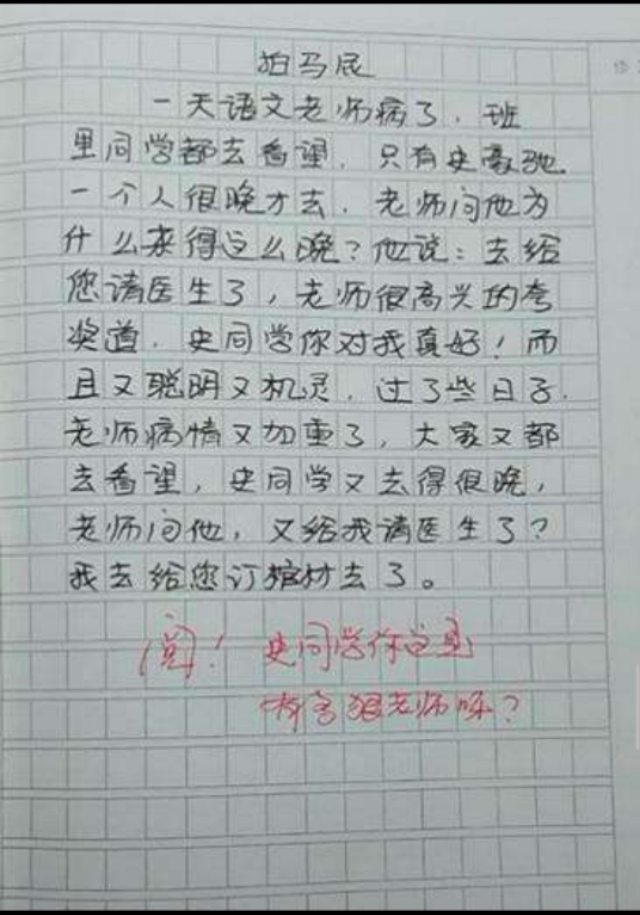 拍马屁
一天语文老师病了，班
里同学都去看望，只有史豪驰
一个人很晚才去，老师问他为
什么来得这么晚？他说：去给
您请医生了，老师很高兴的夸
奖道，史同学你对我真好！而
且又聪明又机灵，过了些日子，
老师病情又加重了，大家又都
去看望，史同学又去得很晚，
老师问他，又给我请医生了？
我去给您订棺材去了。
阅！史同学你这是
有多狠老师呀？